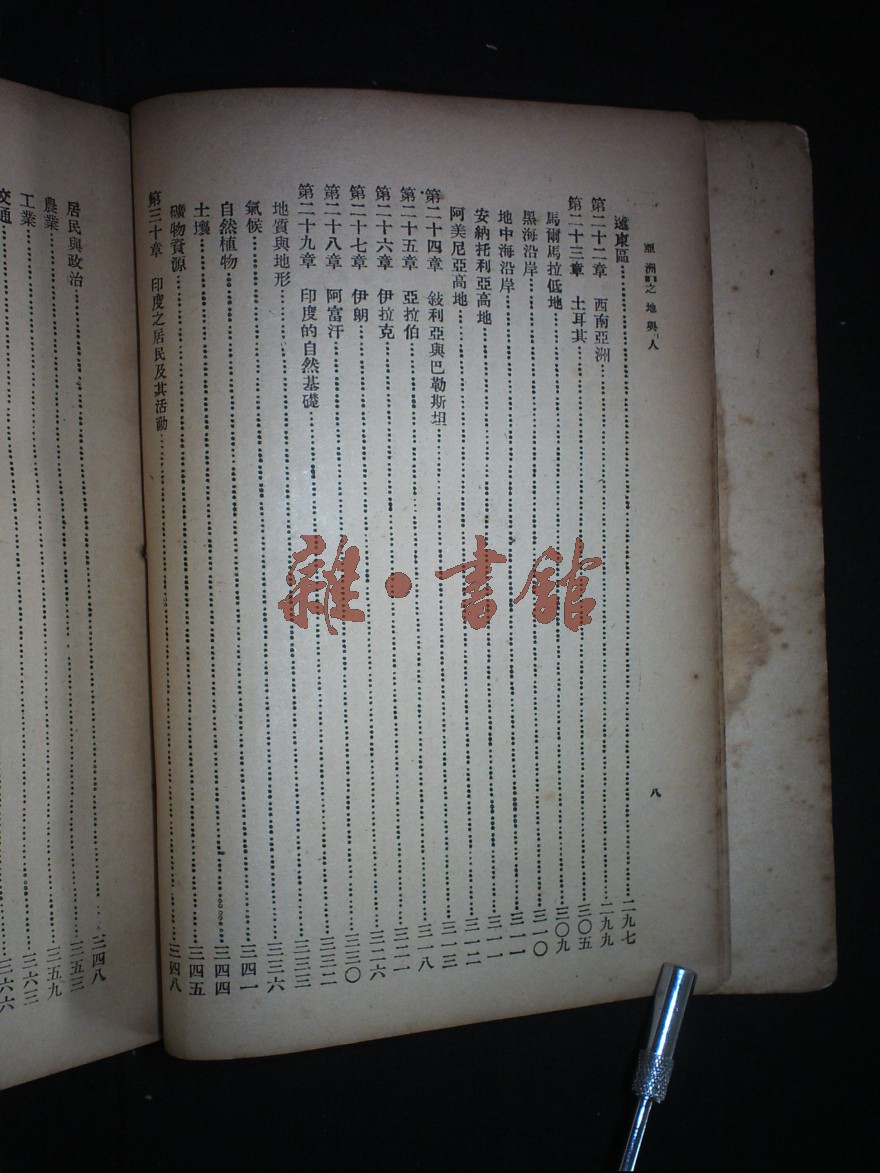 亞洲之地與人 八
遠東區 二九七
第二十二章 西南亞洲 二九九
第二十三章 土耳其 三〇五
馬爾馬拉低地 三〇九
黑海沿岸 三一〇
地中海沿岸 三一一
安納托利亞高地 三一一
阿美尼亞高地 三一二
第二十四章 敍利亞與巴勒斯坦 三一三
第二十五章 亞拉伯 三一八
第二十六章 伊拉克 三二一
第二十七章 伊朗 三二六
第二十八章 阿富汗 三三〇
第二十九章 印度的自然基礎 三三二
地質與地形 三三三
氣候 三三六
自然植物 三四一
土壤 三四四
礦物資源 三四五
第三十章 印度之居民及其活動 三四八
居民與政治 三四八
農業 三五三
工業 三五九
交通 三六三
三六六
雜·書館